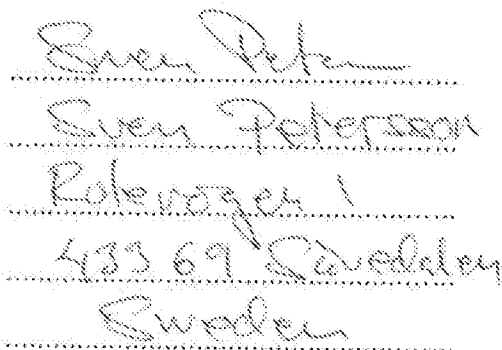 Sven Peter
Sven Petersson
Rotevägen 1
433 69 Sävedalen
Sweden